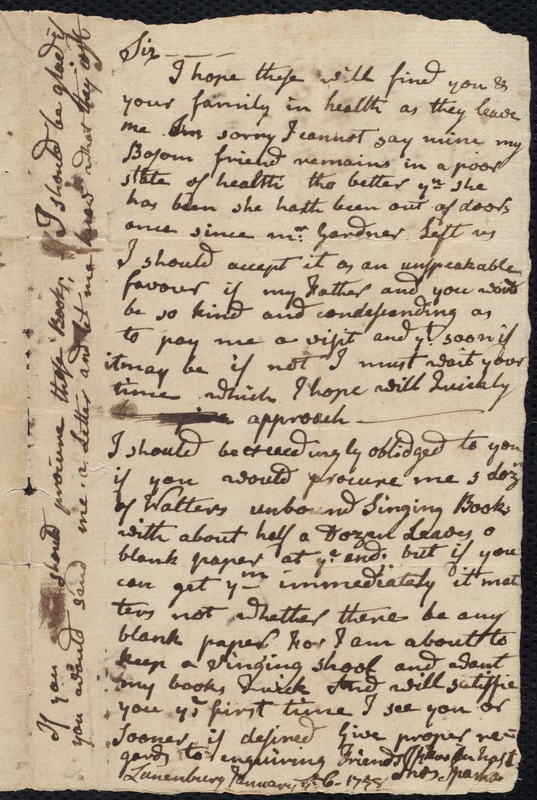 Sir
I hope these will find you &
your family in health as they leave
me Im sorry I cannot say mine my
Bosom friend remains in a poor
state of health tho better yn she
has been she hath been out of doors
once since mr. Gardner Left us
I should accept it as an unspeakable
favour if my Father and you would
be so kind and condesending as
to pay me a visit and yt. soon if
it may be if not I must wait your
time which I hope will Quickly
approach
I should be exceedingly oblidged to you
if you would procure me 3 dozn
of Walters unbound Singing Books
with about half a Dozen Leaves o
blank paper at ye. end. but if you
can get ym immediately it mat
ters not whether there be any
blank paper, For I am about to
keep a Singing shool and want
my books Quick And will sattisfie
you ye first time I see you or
sooner if desired Give proper re=
gards to enquiring Friends
Lunenburg January ye. 6. 17
If you should procure these Books, I should be glad if
you would send me a Letter and let me know what they cost